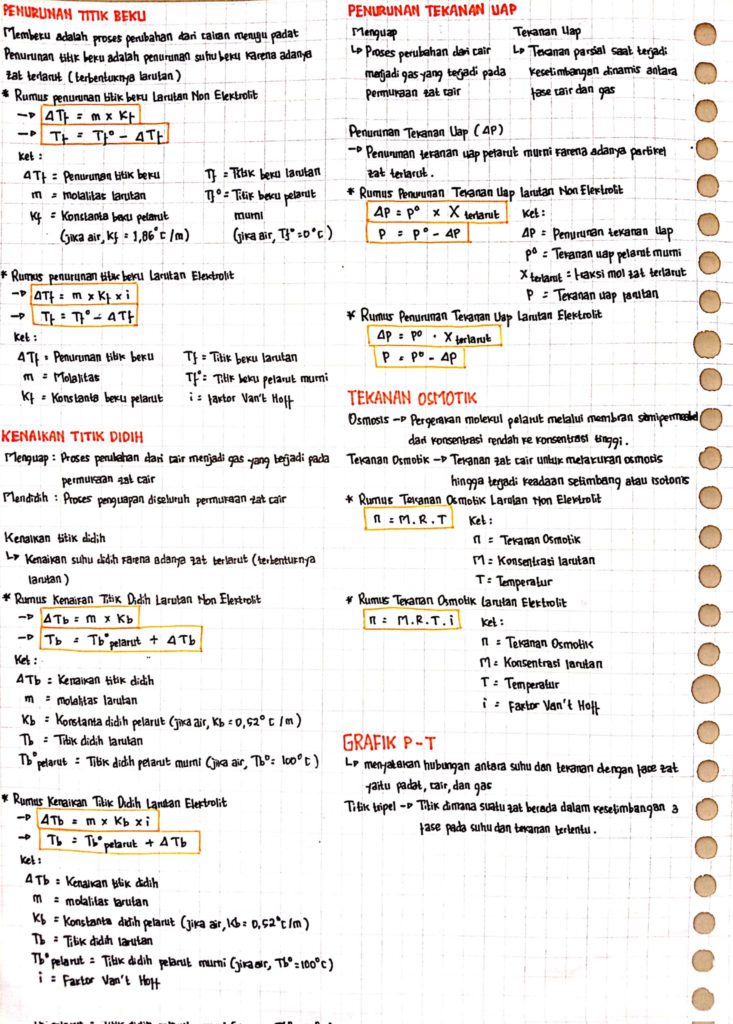 PENURUNAN TITIK BEKU
Membeku adalah proses perubahan dari cairan menuju padat
Penurunan titik beku adalah penurunan suhu beku karena adanya
zat terlarut (terbentuknya larutan)
* Rumus penurunan titik beku Larutan Non Elektrolit
→ ΔTf = m x Kf
→ Tf = Tf° - ΔTf
Ket :
ΔTf = Penurunan titik beku Tf = Titik beku larutan
m = molalitas larutan Tf° = Titik beku pelarut
Kf = Konstanta beku pelarut murni
(jika air, Kf = 1,86°C/m) (jika air, Tf°=0°C)
* Rumus penurunan titik beku Larutan Elektrolit
→ ΔTf = m x Kf x i
→ Tf = Tf° - ΔTf
Ket :
ΔTf = Penurunan titik beku Tf = Titik beku larutan
m = Molalitas Tf° = Titik beku pelarut murni
Kf = Konstanta beku pelarut i = faktor Van't Hoff
KENAIKAN TITIK DIDIH
Menguap : Proses perubahan dari cair menjadi gas yang terjadi pada
permukaan zat cair
Mendidih : Proses penguapan diseluruh permukaan zat cair
Kenaikan titik didih
↳ Kenaikan suhu didih karena adanya zat terlarut (terbentuknya
larutan)
* Rumus Kenaikan Titik Didih Larutan Non Elektrolit
→ ΔTb = m x Kb
→ Tb = Tb° pelarut + ΔTb
Ket :
ΔTb = Kenaikan titik didih
m = molalitas larutan
Kb = Konstanta didih pelarut (jika air, Kb = 0,52°C/m)
Tb = Titik didih larutan
Tb° pelarut = Titik didih pelarut murni (jika air, Tb° = 100°C)
* Rumus Kenaikan Titik Didih Larutan Elektrolit
→ ΔTb = m x Kb x i
→ Tb = Tb° pelarut + ΔTb
Ket :
ΔTb = Kenaikan titik didih
m = molalitas larutan
Kb = Konstanta didih pelarut (jika air, Kb = 0,52°C/m)
Tb = Titik didih larutan
Tb° pelarut = Titik didih pelarut murni (jika air, Tb° = 100°C)
i = Faktor Van't Hoff
PENURUNAN TEKANAN UAP
Menguap Tekanan Uap
↳ Proses perubahan dari cair ↳ Tekanan parsial saat terjadi
menjadi gas yang terjadi pada kesetimbangan dinamis antara
permukaan zat cair fase cair dan gas
Penurunan Tekanan Uap (ΔP)
→ Penurunan tekanan uap pelarut murni karena adanya partikel
zat terlarut.
* Rumus Penurunan Tekanan Uap larutan Non Elektrolit
ΔP = P° x X terlarut Ket :
P = P° - ΔP ΔP = Penurunan tekanan uap
P° = Tekanan uap pelarut murni
X terlarut = fraksi mol zat terlarut
P = Tekanan uap larutan
* Rumus Penurunan Tekanan Uap Larutan Elektrolit
ΔP = P° . X terlarut
P = P° - ΔP
TEKANAN OSMOTIK
Osmosis → Pergerakan molekul pelarut melalui membran
dari konsentrasi rendah ke konsentrasi tinggi.
Tekanan Osmotik → Tekanan zat cair untuk melakukan osmosis
hingga terjadi keadaan setimbang atau isotonis
* Rumus Tekanan Osmotik Larutan Non Elektrolit
π = M.R.T Ket :
π = Tekanan Osmotik
M = Konsentrasi larutan
T = Temperatur
* Rumus Tekanan Osmotik Larutan Elektrolit
π = M.R.T.i Ket :
π = Tekanan Osmotik
M = Konsentrasi larutan
T = Temperatur
i = Faktor Van't Hoff
GRAFIK P-T
↳ menyatakan hubungan antara suhu dan tekanan dengan fase zat
yaitu padat, cair, dan gas
Titik tripel → Titik dimana suatu zat berada dalam kesetimbangan 3
fase pada suhu dan tekanan tertentu.